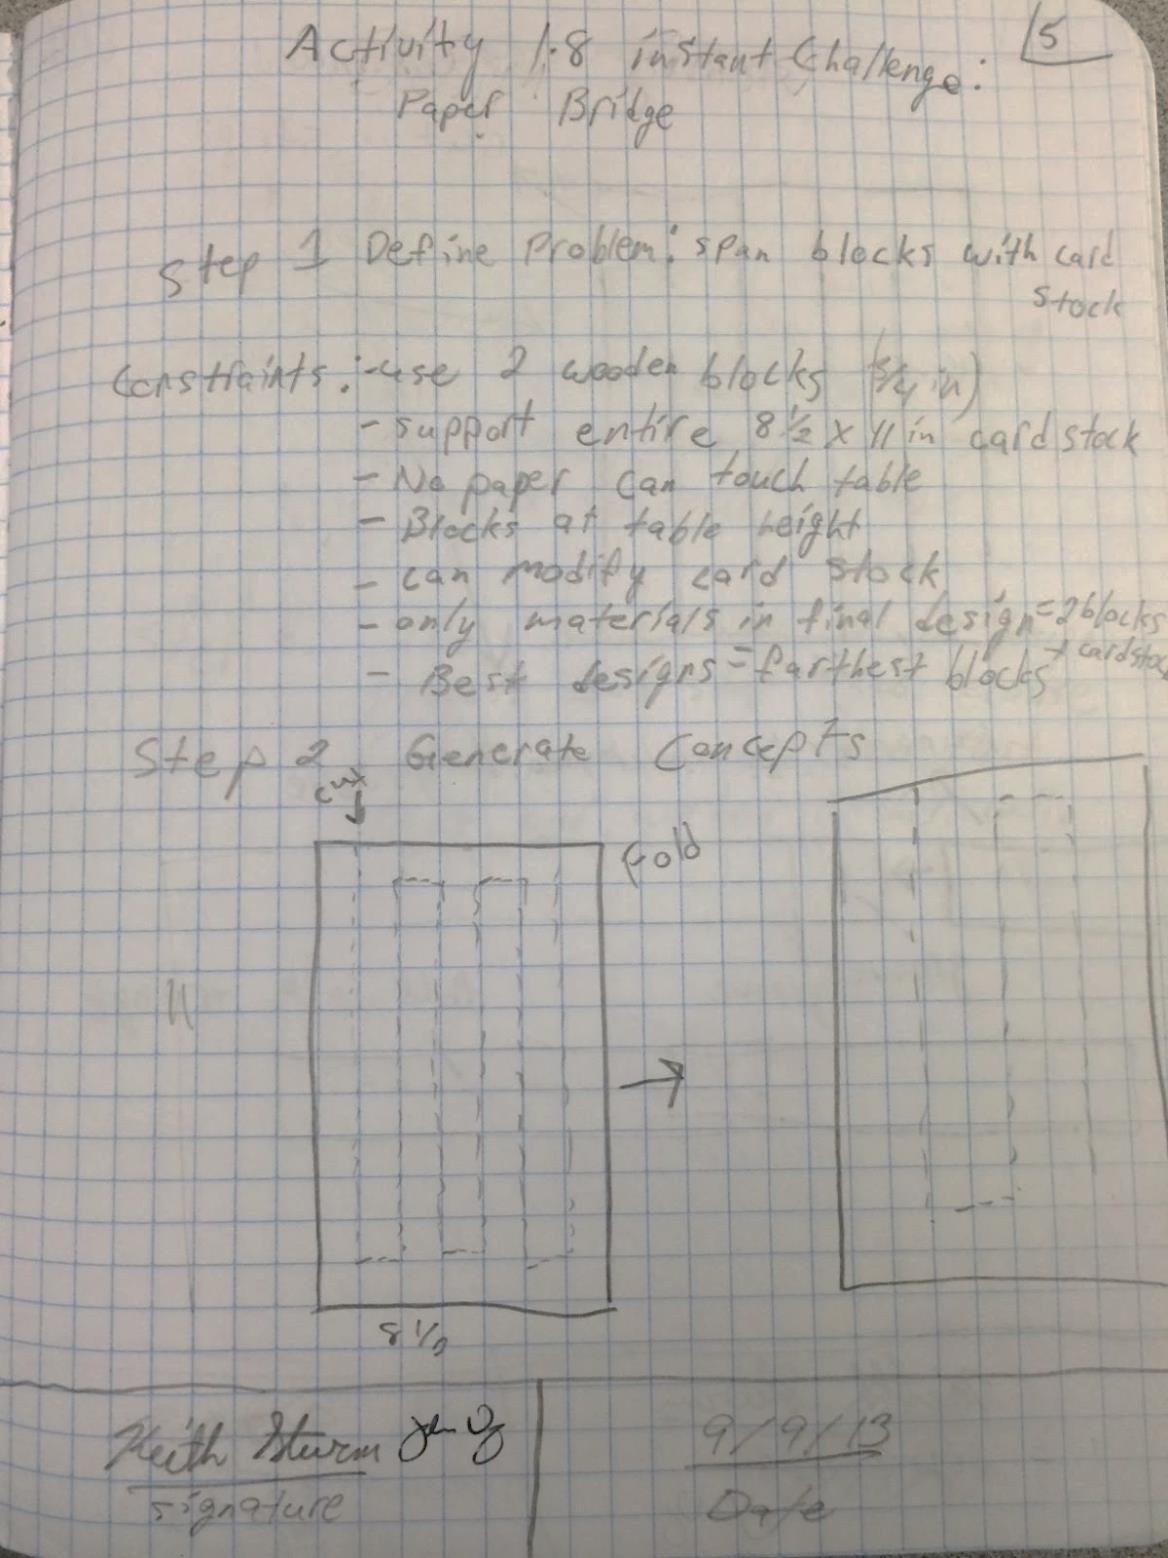 15
Activity 1.8 instant Challenge:
Paper Bridge
Step 1 Define Problem: span blocks with card
stock
Constraints: -use 2 wooden blocks (3/4 in)
- support entire 8 1/2 x 11 in card stock
- No paper can touch table
- Blocks at table height
- can modify card stock
- only materials in final design = 2 blocks
+ cardstoc
- Best designs = farthest blocks
Step 2 Generate Concepts
cut
fold
11
8 1/2
Keith Sturm
9/9/13
signature
Date